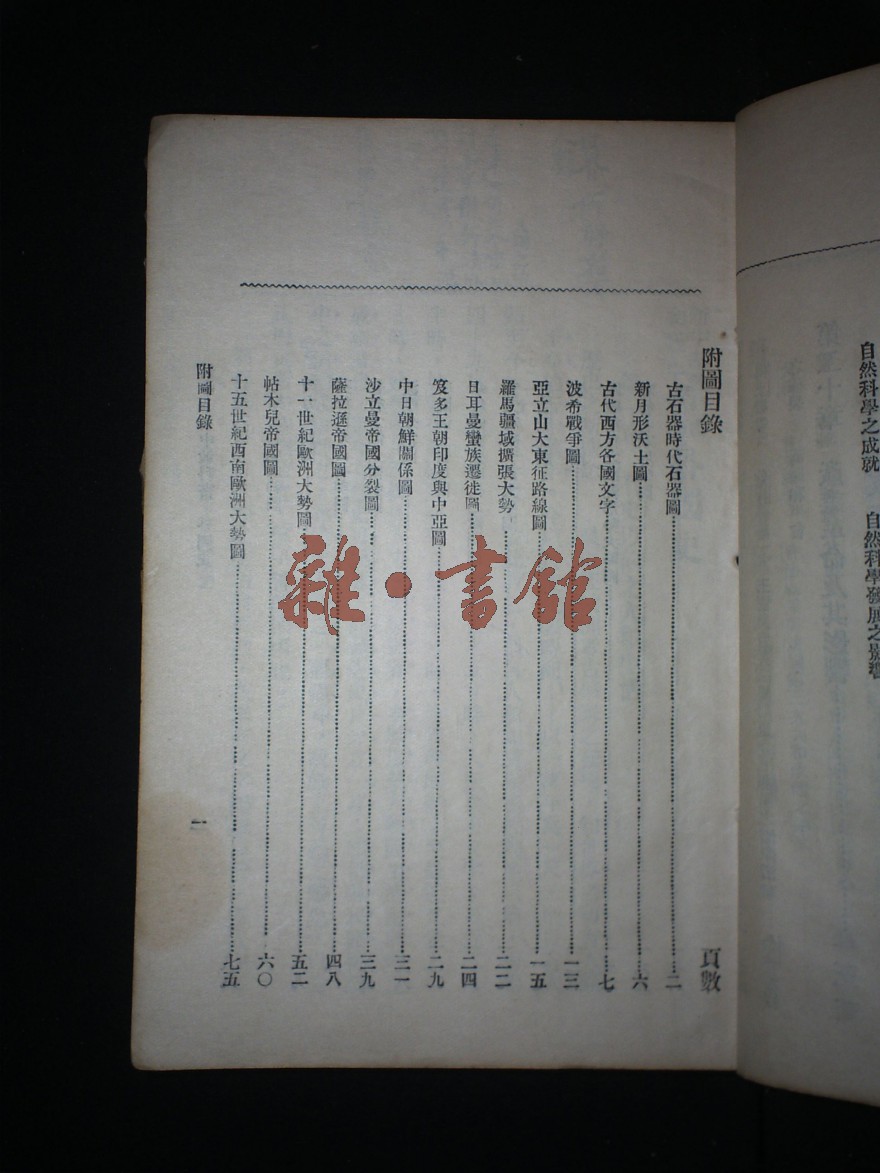 自然科學之成就　自然科學發展之影響
附圖目錄　頁數
古石器時代石器圖……二
新月形沃土圖……六
古代西方各國文字……七
波希戰爭圖……一三
亞立山大東征路線圖……一五
羅馬疆域擴張大勢……二二
日耳曼蠻族遷徙圖……二四
笈多王朝印度與中亞圖……二九
中日朝鮮關係圖……三一
沙立曼帝國分裂圖……三九
薩拉遜帝國圖……四八
十一世紀歐洲大勢圖……五二
帖木兒帝國圖……六〇
十五世紀西南歐洲大勢圖……七五
附圖目錄　一
雜·書館